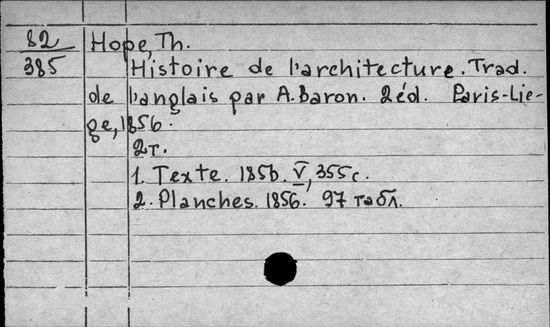 82 Hope, Th.
385 Histoire de l'architecture. Trad.
de l'anglais par A. Baron. 2 éd. Paris-Lie-
ge, 1856.
2 т.
1. Texte. 1856. V, 355 с.
2. Planches. 1856. 97 табл.